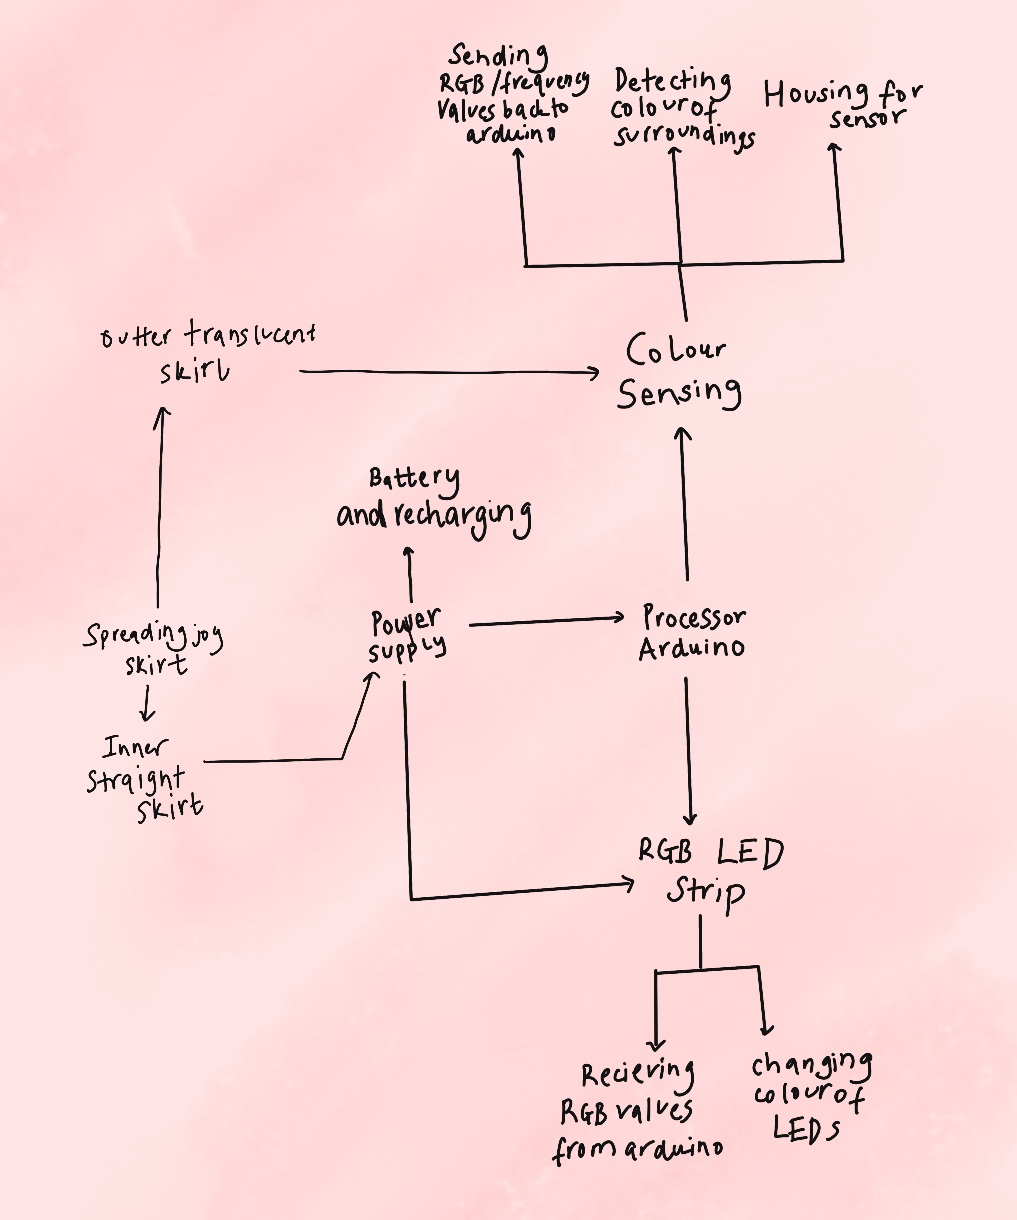 Sending
RGB/frequency
values back to
arduino
Detecting
colour of
surroundings
Housing for
sensor
outter translucent
skirt
Colour
Sensing
Battery
and recharging
Spreading joy
skirt
Power
supply
Processor
Arduino
Inner
straight
skirt
RGB LED
Strip
Recieving
RGB values
from arduino
changing
colour of
LEDs